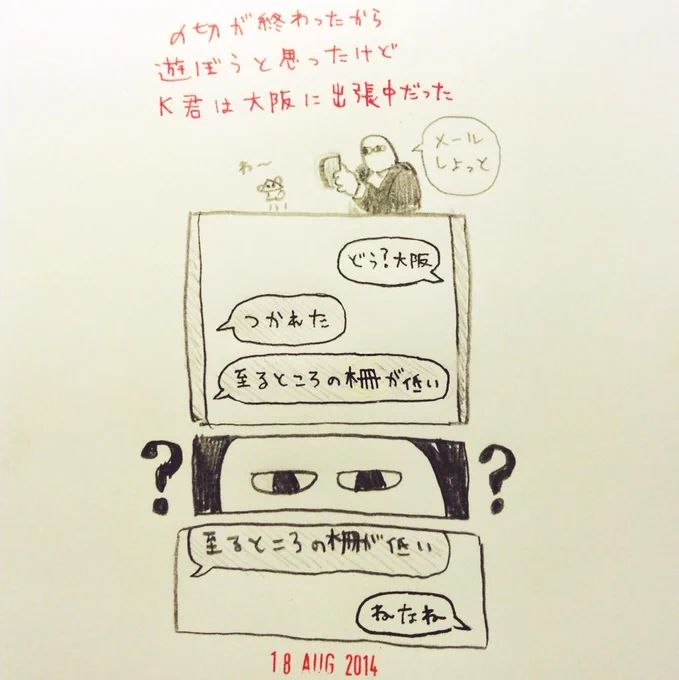 〆切が終わったから
遊ぼうと思ったけど
K君は大阪に出張中だった
わ〜
メール
しよっと
どう?大阪
つかれた
至るところの柵が低い
? ?
至るところの柵が低い
ねなね
18 AUG 2014